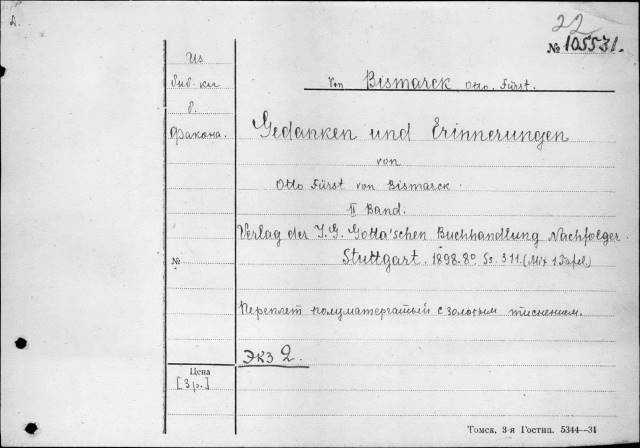 22
А.
№ 105531.
Из
биб-ки
б.
Фракона.
Von Bismarck Otto, Fürst.
Gedanken und Erinnerungen
von
Otto Fürst von Bismarck.
II Band.
Verlag der J. G. Cotta'schen Buchhandlung Nachfolger.
№
Stuttgart. 1898. 8º Ss. 311. (Mix 1 Tafel)
Переплет полуматерчатый с золотым тиснением.
Экз 2.
Цена
[3 р.]
Томск, 3-я Гостип. 5344—31